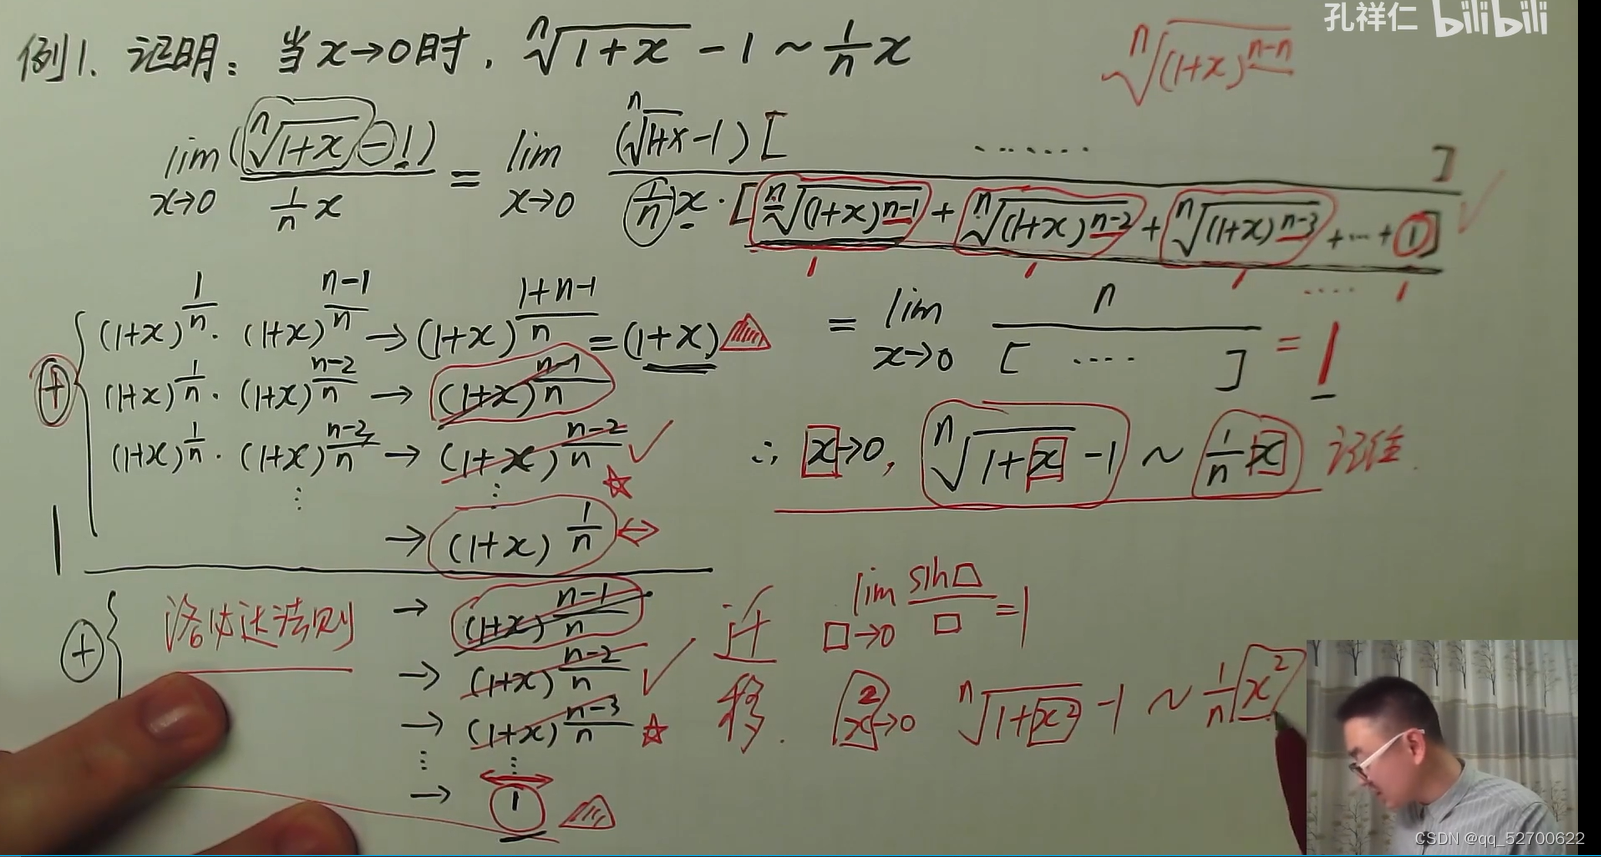 孔祥仁 bilibili
例1. 证明：当 x→0时, ⁿ√(1+x) - 1 ~ 1/n x
ⁿ√((1+x)^(n-n))
lim x→0 (ⁿ√(1+x) - 1) / (1/n x) = lim x→0 (ⁿ√(1+x) - 1)[ ······· ] / (1/n)x·[ⁿ√((1+x)^(n-1)) + ⁿ√((1+x)^(n-2)) + ⁿ√((1+x)^(n-3)) + ··· + 1]
1 1 1 ···· 1
(1+x)^(1/n) · (1+x)^((n-1)/n) → (1+x)^((1+n-1)/n) = (1+x)
= lim x→0 n / [ ···· ] = 1
⊕
(1+x)^(1/n) · (1+x)^((n-2)/n) → (1+x)^((n-1)/n)
(1+x)^(1/n) · (1+x)^((n-2)/n) → (1+x)^((n-2)/n)
∴ x→0, ⁿ√(1+x) - 1 ~ 1/n x 记住.
⋮ ⋮
→ (1+x)^(1/n)
⊕
洛必达法则
→ (1+x)^((n-1)/n)
→ (1+x)^((n-2)/n)
→ (1+x)^((n-3)/n)
⋮ ⋮
→ 1
迁移.
lim □→0 sin□/□ = 1
x²→0 ⁿ√(1+x²) - 1 ~ 1/n x²
CSDN @qq_52700622